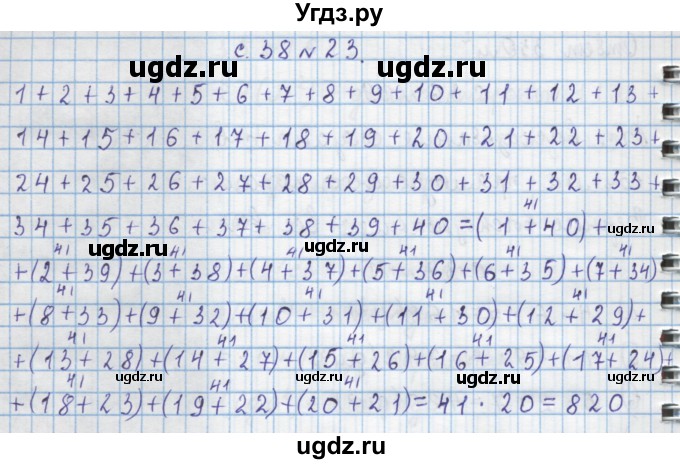 Угдз.ру
с. 38 № 23.
ugdz.ru ugdz.ru
1 + 2 + 3 + 4 + 5 + 6 + 7 + 8 + 9 + 10 + 11 + 12 + 13 +
14 + 15 + 16 + 17 + 18 + 19 + 20 + 21 + 22 + 23 +
24 + 25 + 26 + 27 + 28 + 29 + 30 + 31 + 32 + 33 +
41
34 + 35 + 36 + 37 + 38 + 39 + 40 = (1 + 40) +
ugdz.ru ugdz.ru ugdz.ru
41 41 41 41 41 41
+ (2 + 39) + (3 + 38) + (4 + 37) + (5 + 36) + (6 + 35) + (7 + 34)
41 41 41 41 41
+ (8 + 33) + (9 + 32) + (10 + 31) + (11 + 30) + (12 + 29) +
ugdz.ru
41 41 41 41 41
+ (13 + 28) + (14 + 27) + (15 + 26) + (16 + 25) + (17 + 24) +
ugdz.ru ugdz.ru ugdz.ru ugdz.ru
41 41 41
+ (18 + 23) + (19 + 22) + (20 + 21) = 41 · 20 = 820
ugdz.ru